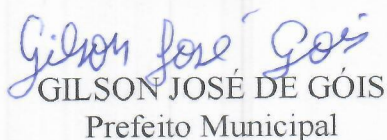 Gilson José Gois
GILSON JOSÉ DE GÓIS
Prefeito Municipal